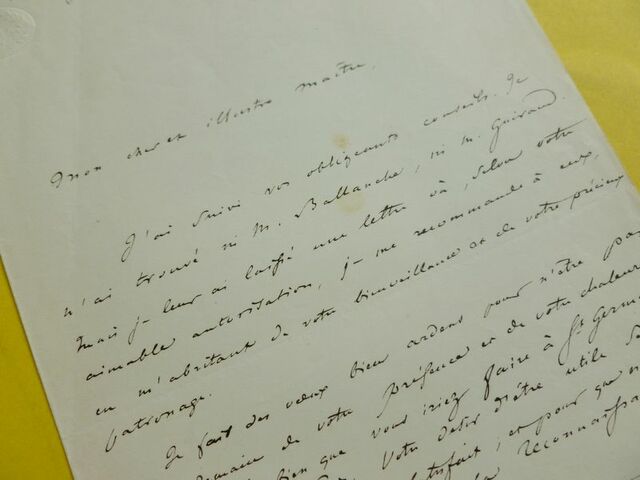 Mon cher et illustre maître,
J'ai suivi vos obligeants conseils. Je
n'ai trouvé ni M. Ballanche, ni M. Guiraud.
Mais je leur ai laissé une lettre où, selon votre
aimable autorisation, je me recommande à eux,
en m'abritant de votre bienveillance et de votre précieux
patronage.
Je fais des vœux bien ardens pour n'être pas
de votre présence et de votre chaleur
bien que vous iriez faire à St Germ
Votre désir d'être utile
satisfait ; et pour que
la reconnaissa